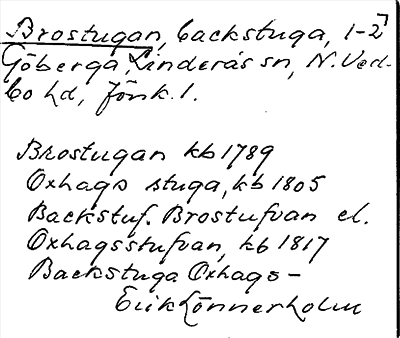 Brostugan, backstuga, 1-2
Göberga, Linderås sn, N. Ved-
bo hd, Jönk. l.
Brostugan kb 1789
Oxhags stuga, kb 1805
Backstuf. Brostufvan el.
Oxhagsstufvan, kb 1817
Backstuga Oxhags-
Erik Lönnerholm